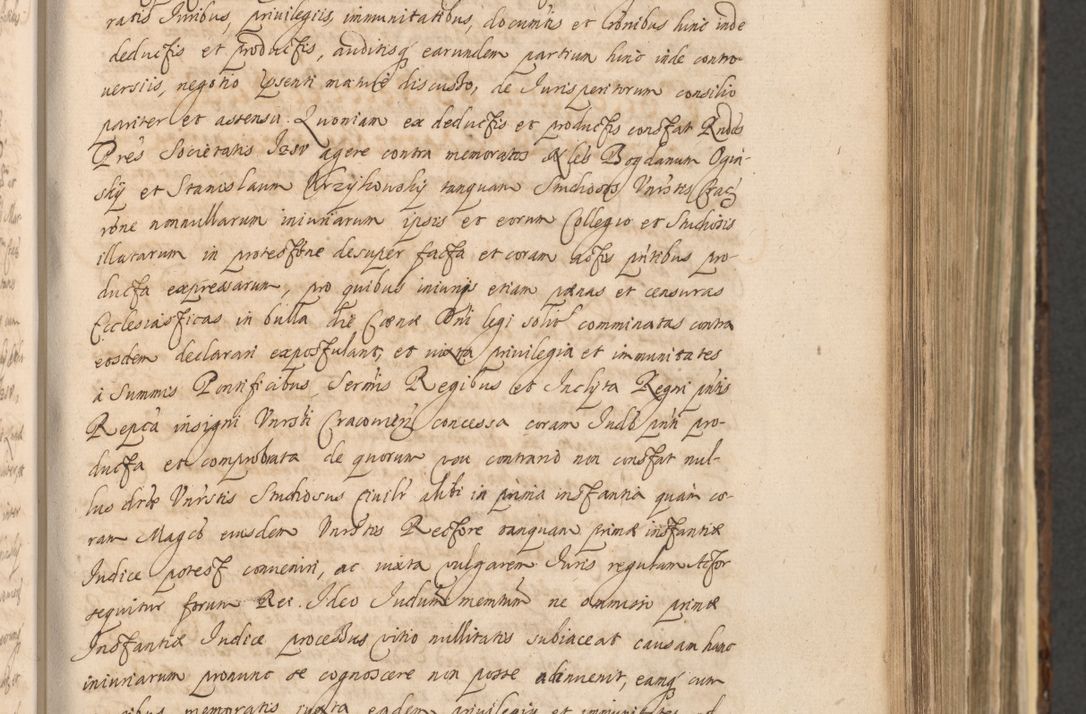 ratis Juribus, privilegiis, immunitatibus, documtis et Cõnibus hinc inde
deductis et productis, auditisq earundem partium hinc inde contro-
versiis, negotio pñsenti maturè discusso, de Jurisperitorum consilio
pariter et assensu. Quoniam ex deductis et productis constat Rndos
Pres Societatis Iesv agere contra memoratos Nbles Bogdanum Ogin-
skÿ et Stanislaum Krzÿkowskÿ tanquam Studiosos Vnirstis Crac
rone nonnullarum iniuriarum ipsis et eorum Collegio et Studiosis
illatarum in protestõne desuper facta et coram actis pñtibus pro-
ducta expressarum, pro quibus iniurijs etiam pænas et censuras
Ecclesiasticas in bulla die Cœnæ Dñi legi solit comminatas contra
eosdem declarari expostulant, et iuxta privilegia et immunitates
à Summis Pontificibus, Sermis Regibus et Inclyta Regni pñtis
Repca insigni Vnirsti Cracovien concessa coram Judõ pñti pro-
ducta et comprobata de quorum vsu contrario non constat nul-
lus dictæ Vnirstis Studiosus civilr alibi in prima instantia quàm co-
ram Magco eiusdem Vnirstis Rectore tanquam primæ instantiæ
Judice potest conveniri, ac iuxta vulgarem Juris regulam Actor
sequitur forum Rei. Ideo Judum memtum ne omisso primæ
Instantiæ Judice processus vitio nullitatis subiaceat causam hanc
iniuriarum pronunc se cognoscere non posse adinvenit, eamq cum
memoratis iuxta eadem privilegia et immunitates ad